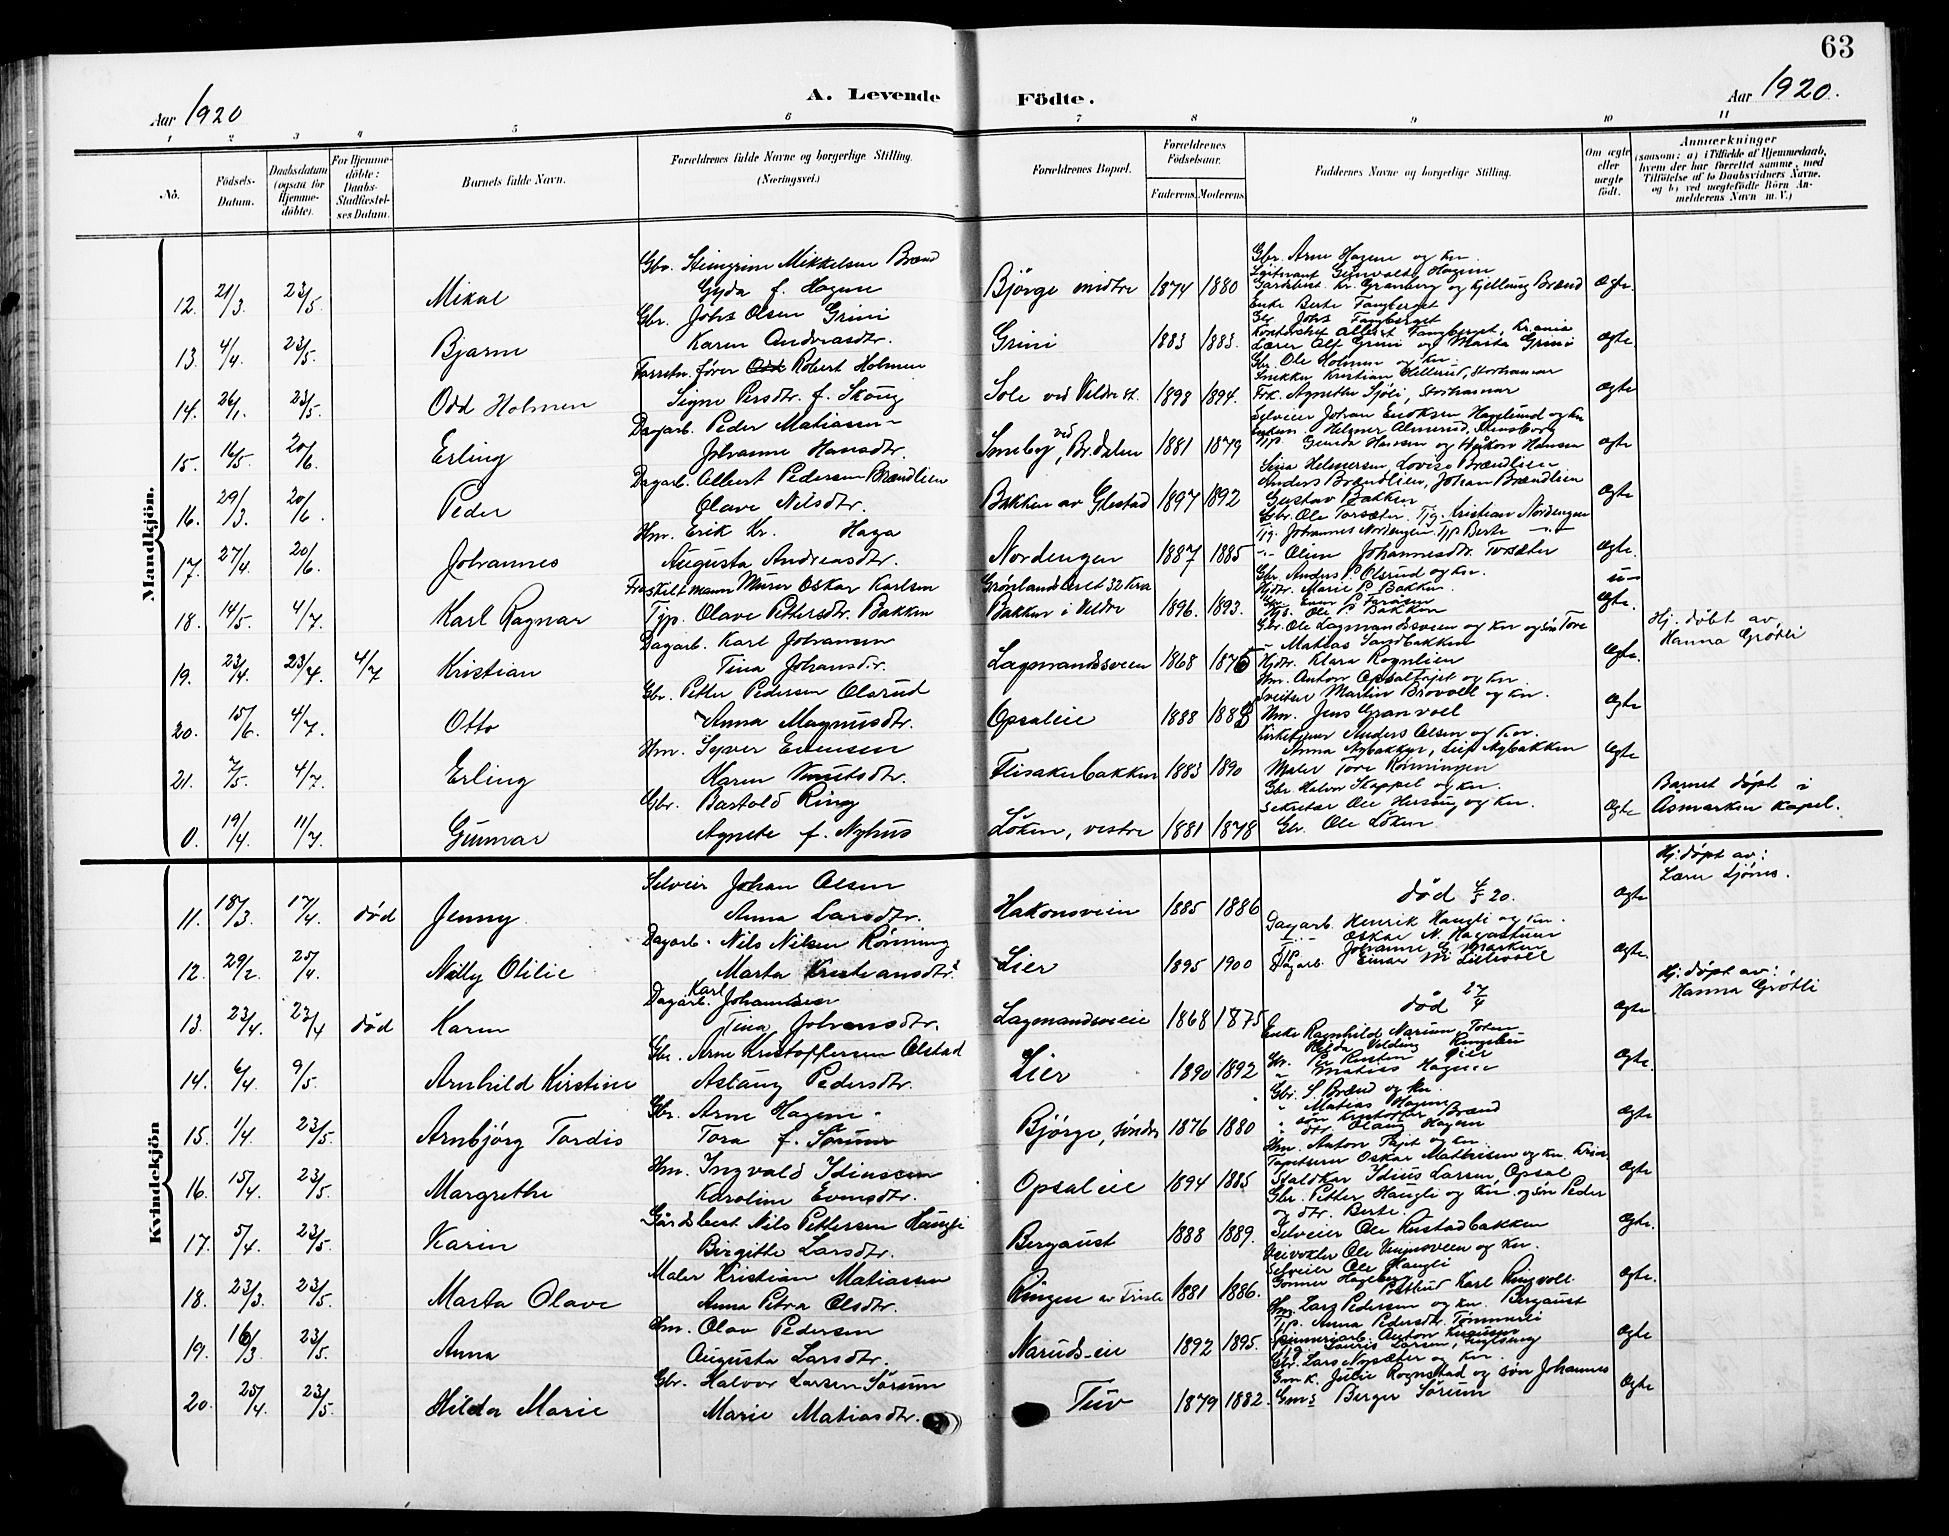 63
Aar 1920
A. Levende Födte.
Aar 1920.
1 2 3 4 5 6 7 8 9 10 11
No.
Födsels-Datum.
Daabsdatum (ogsaa for Hjemme-döbte).
For Hjemme-döbte: Daabs-Stadfæstel-ses Datum.
Barnets fulde Navn.
Forældrenes fulde Navne og borgerlige Stilling. (Næringsvei.)
Forældrenes Bopæl.
Forældrenes Födselsaar.
Faderens Moderens
Faddernes Navne og borgerlige Stilling.
Om ægte eller uægte født.
Anmærkninger
(saasom: a) i Tilfælde af Hjemmedaab, hvem der har forrettet samme, med Tilföielse af to Daabsvidners Navne. og b) ved uægtefödte Börn Anmelderens Navn m. V.)
Mandkjön.
12. 21/3. 23/5. Mikal
Gbr. Steingrim Mikkelsen Brænd
Gyda f. Hagen
Bjørge midtre 1874 1880
Gbr. Arne Hagen og kn.
Gardsbest. Kr. Granberg og Kjellaug Brænd
Ægte.
13. 4/4. 23/5. Bjarne
Gbr. Johs Olsen Grini
Karen Andreasdtr.
Grini 1883 1883.
Enke Berte Fangberget
Gbr. Johs Fangberget
Kontorchef Albert Fangberget, Krania
Lærer Alf Grini og Marta Grini
Ægte.
14. 26/1. 23/5. Odd Holmen
Robert Holmen
Signe Persdtr. f. Skoug
Sole ved Veldre st. 1898 1894.
Gbr. Ole Holmen og kn.
Snekker Kristian Hillerud, Storhamar
Frk. Agnethe Sjøli, Storhamar
Ægte
15. 16/5. 20/6. Erling
Dagarb. Peder Matiassen
Johanne Hansdtr.
Smeby, ved Br.dalen 1881 1879
Selveier Johan Eriksen Haglund og kn
Tjp. Gunda Hansen og Håkon Hansen
Ægte
16. 29/3. 20/6. Peder
Dagarb. Albert Pedersen Brændlien
Olave Nilsdtr.
Bakken av Glestad 1897 1892
Sina Helmersen, Lovise Brændlien
Anders Brændlien, Johan Brændlien
Gustav Bakken
Ægte
17. 27/4. 20/6. Johannes
Hm. Erik Kr. Haga
Augusta Andreasdtr.
Nordengen 1887 1885
Gbr. Ole Torsæter. Tjg. Kristian Nordengen
Tjg. Johannes Nordengen Tjp Berte
Oline Johannesdtr. Torsæter
Ægte.
18. 14/5. 4/7. Karl Ragnar
Fraskilt mann Murer Oskar Karlsen
Tjp. Olave Pettersdtr. Bakken
Grønlandsleret 32 Kra
Bakken i Veldre 1896. 1893.
Gbr. Anders P. Olsrud og kn.
Hjdtr. Marie P. Bakken
Ole P. Bakken
u- Ægte.
19. 23/4. 23/4. 4/7 Kristian
Dagarb. Karl Johansen
Tina Johansdtr.
Lagmandsveen 1868 1875
Gbr. Ole Lagmandsveen og kn og søn Tore
Matias Sandbakken
Hjdtr. Klara Rognlien
Ægte.
Hj. døbt av
Hanna Grøtli
20. 15/6. 4/7. Otto
Gbr. Petter Pedersen Olsrud
Anna Magnusdtr.
Opsaleie 1888 1888
Hm. Anton Opsaltajet og kn.
Sveitser Martin Brovoll og kn.
Hm. Jens Granvoll
Ægte
21. 2/5. 4/7. Erling
Hm. Syver Evensen
Karen Knutsdtr.
Flisakerbakken 1883 1890
Kirketjener Anders Olsen og kn.
Anna Nybakken, Leif Nybakken
Maler Tore Rønningen
Ægte
0. 19/4. 11/7. Gunnar
Gbr. Bartold Ring
Agnete f. Nyhus
Løken, vestre 1881 1878
Gbr. Halvor Skappel og kn.
Sekretær Ole Hersoug og kn.
Gbr. Ole Løken.
Ægte
Barnet døpt i
Åsmarken kapel.
Kvindekjön
11. 18/3. 17/4. død Jenny.
Selveier Johan Olsen
Anna Larsdtr.
Hakonsveen 1885 1886
død 4/5 20.
Ægte
Hj. døpt av:
Lærer Sjønes.
12. 29/2. 25/4. Nelly Otilie
Dagarb. Nils Nilsen Rønning
Marta Kristiansdtr.
Lier 1895 1900
Dagarb. Henrik Haugli og kn.
Oskar N. Hagastuen
Dagarb. Einar M. Lillevoll
Ægte.
13. 23/4. 23/4 død Karen
Dagarb. Karl Johansen
Tina Johansdtr.
Lagmandsveie 1868 1875
død 27/4
Ægte.
Hj. døpt av:
Hanna Grøtli
14. 6/4. 9/5. Arnhild Kirstine
Gbr. Arne Kristoffersen Olstad
Aslaug Pedersdtr.
Lier 1890 1892
Enke Ragnhild Narum, Toten
Matias Hagen
Ægte.
15. 1/4. 23/5. Arnbjørg Tordis
Gbr. Arne Hagen
Tora f. Sørum
Bjørge, søndre 1876 1880
Gbr. S. Brænd og kn.
Matias Hagen
søn Kristoffer Brænd
dtr. Olaug Hagen
Ægte
16. 15/4. 23/5. Margrethe
Hm. Ingvald Idiussen
Karoline Evensdtr.
Opsaleie 1894 1885
Hm. Anton Tajet og kn.
Tapetserer Oskar Mathisen og kn. Kria
Staldkar Idius Larsen Opsal
Ægte
17. 5/4. 23/5. Karin
Gårdsbest. Nils Pettersen Haugli
Birgitte Larsdtr.
Bergaust 1888 1889.
Gbr. Petter Haugli og kn. og søn Peder
og dtr. Berte.
Selveier Ole Rustadbakken
Ægte.
18. 23/3. 23/5. Marta Olave
Maler Kristian Matiassen
Anna Petra Olsdtr.
Ringen av Freste 1881 1886.
Selveier Ole Haugli
Karl Ringvoll
Ægte.
19. 16/3 23/5. Anna
Hm. Olav Pedersen
Augusta Larsdtr.
Naruds-eie 1892 1895.
Hm. Lars Pedersen og kn. Bergaust
Tjp. Anna Pedersdtr. Tømmerli
Ægte
20. 25/4. 23/5. Hilda Marie
Gbr. Halvor Larsen Sørum
Marie Matiasdtr.
Tuv 1879 1882.
Gbr. Lars Nysæter og kn.
Gmk. Julie Rognstad og søn Johannes
Gms Berger Sørum
Ægte